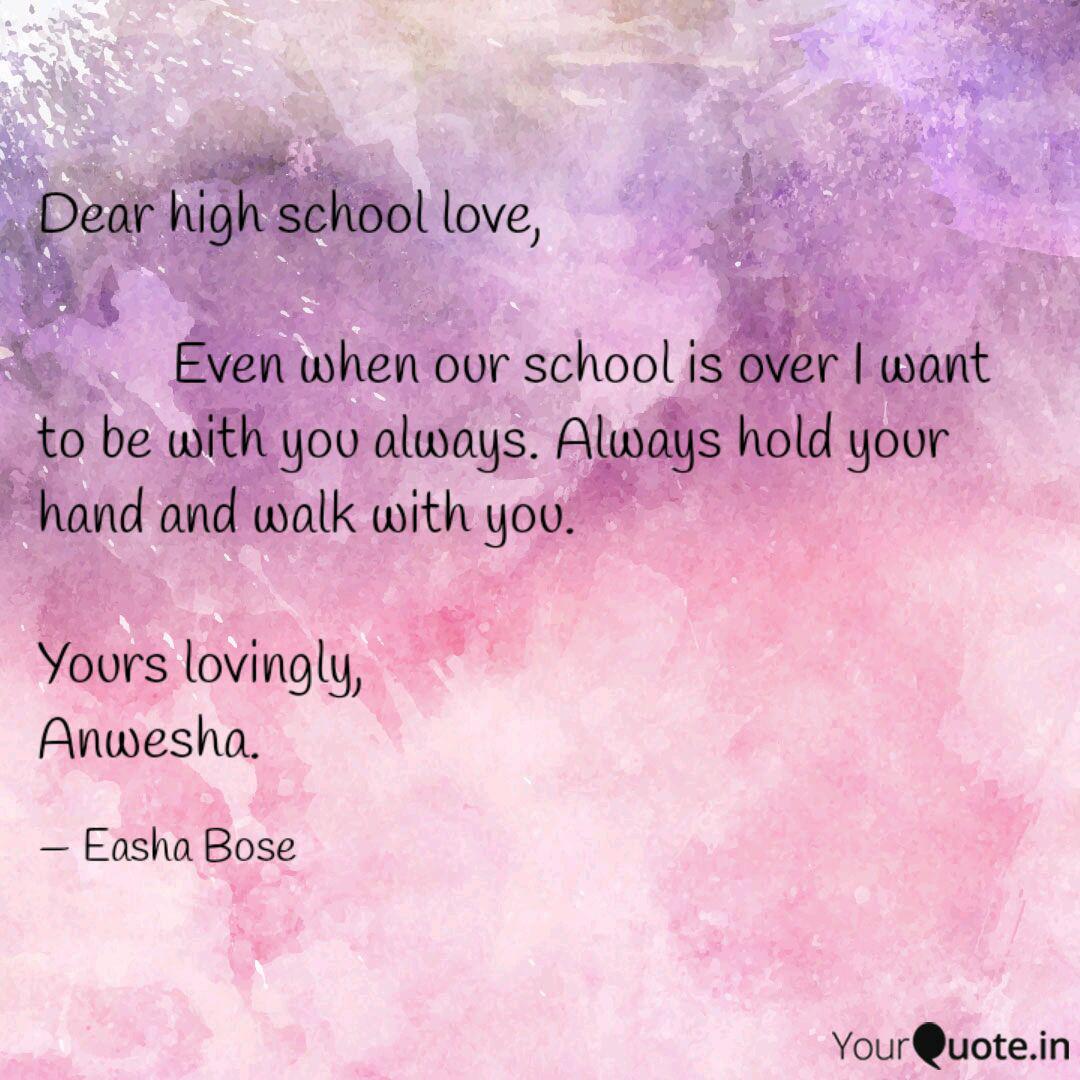 Dear high school love,
Even when our school is over I want
to be with you always. Always hold your
hand and walk with you.
Yours lovingly,
Anwesha.
– Easha Bose
YourQuote.in